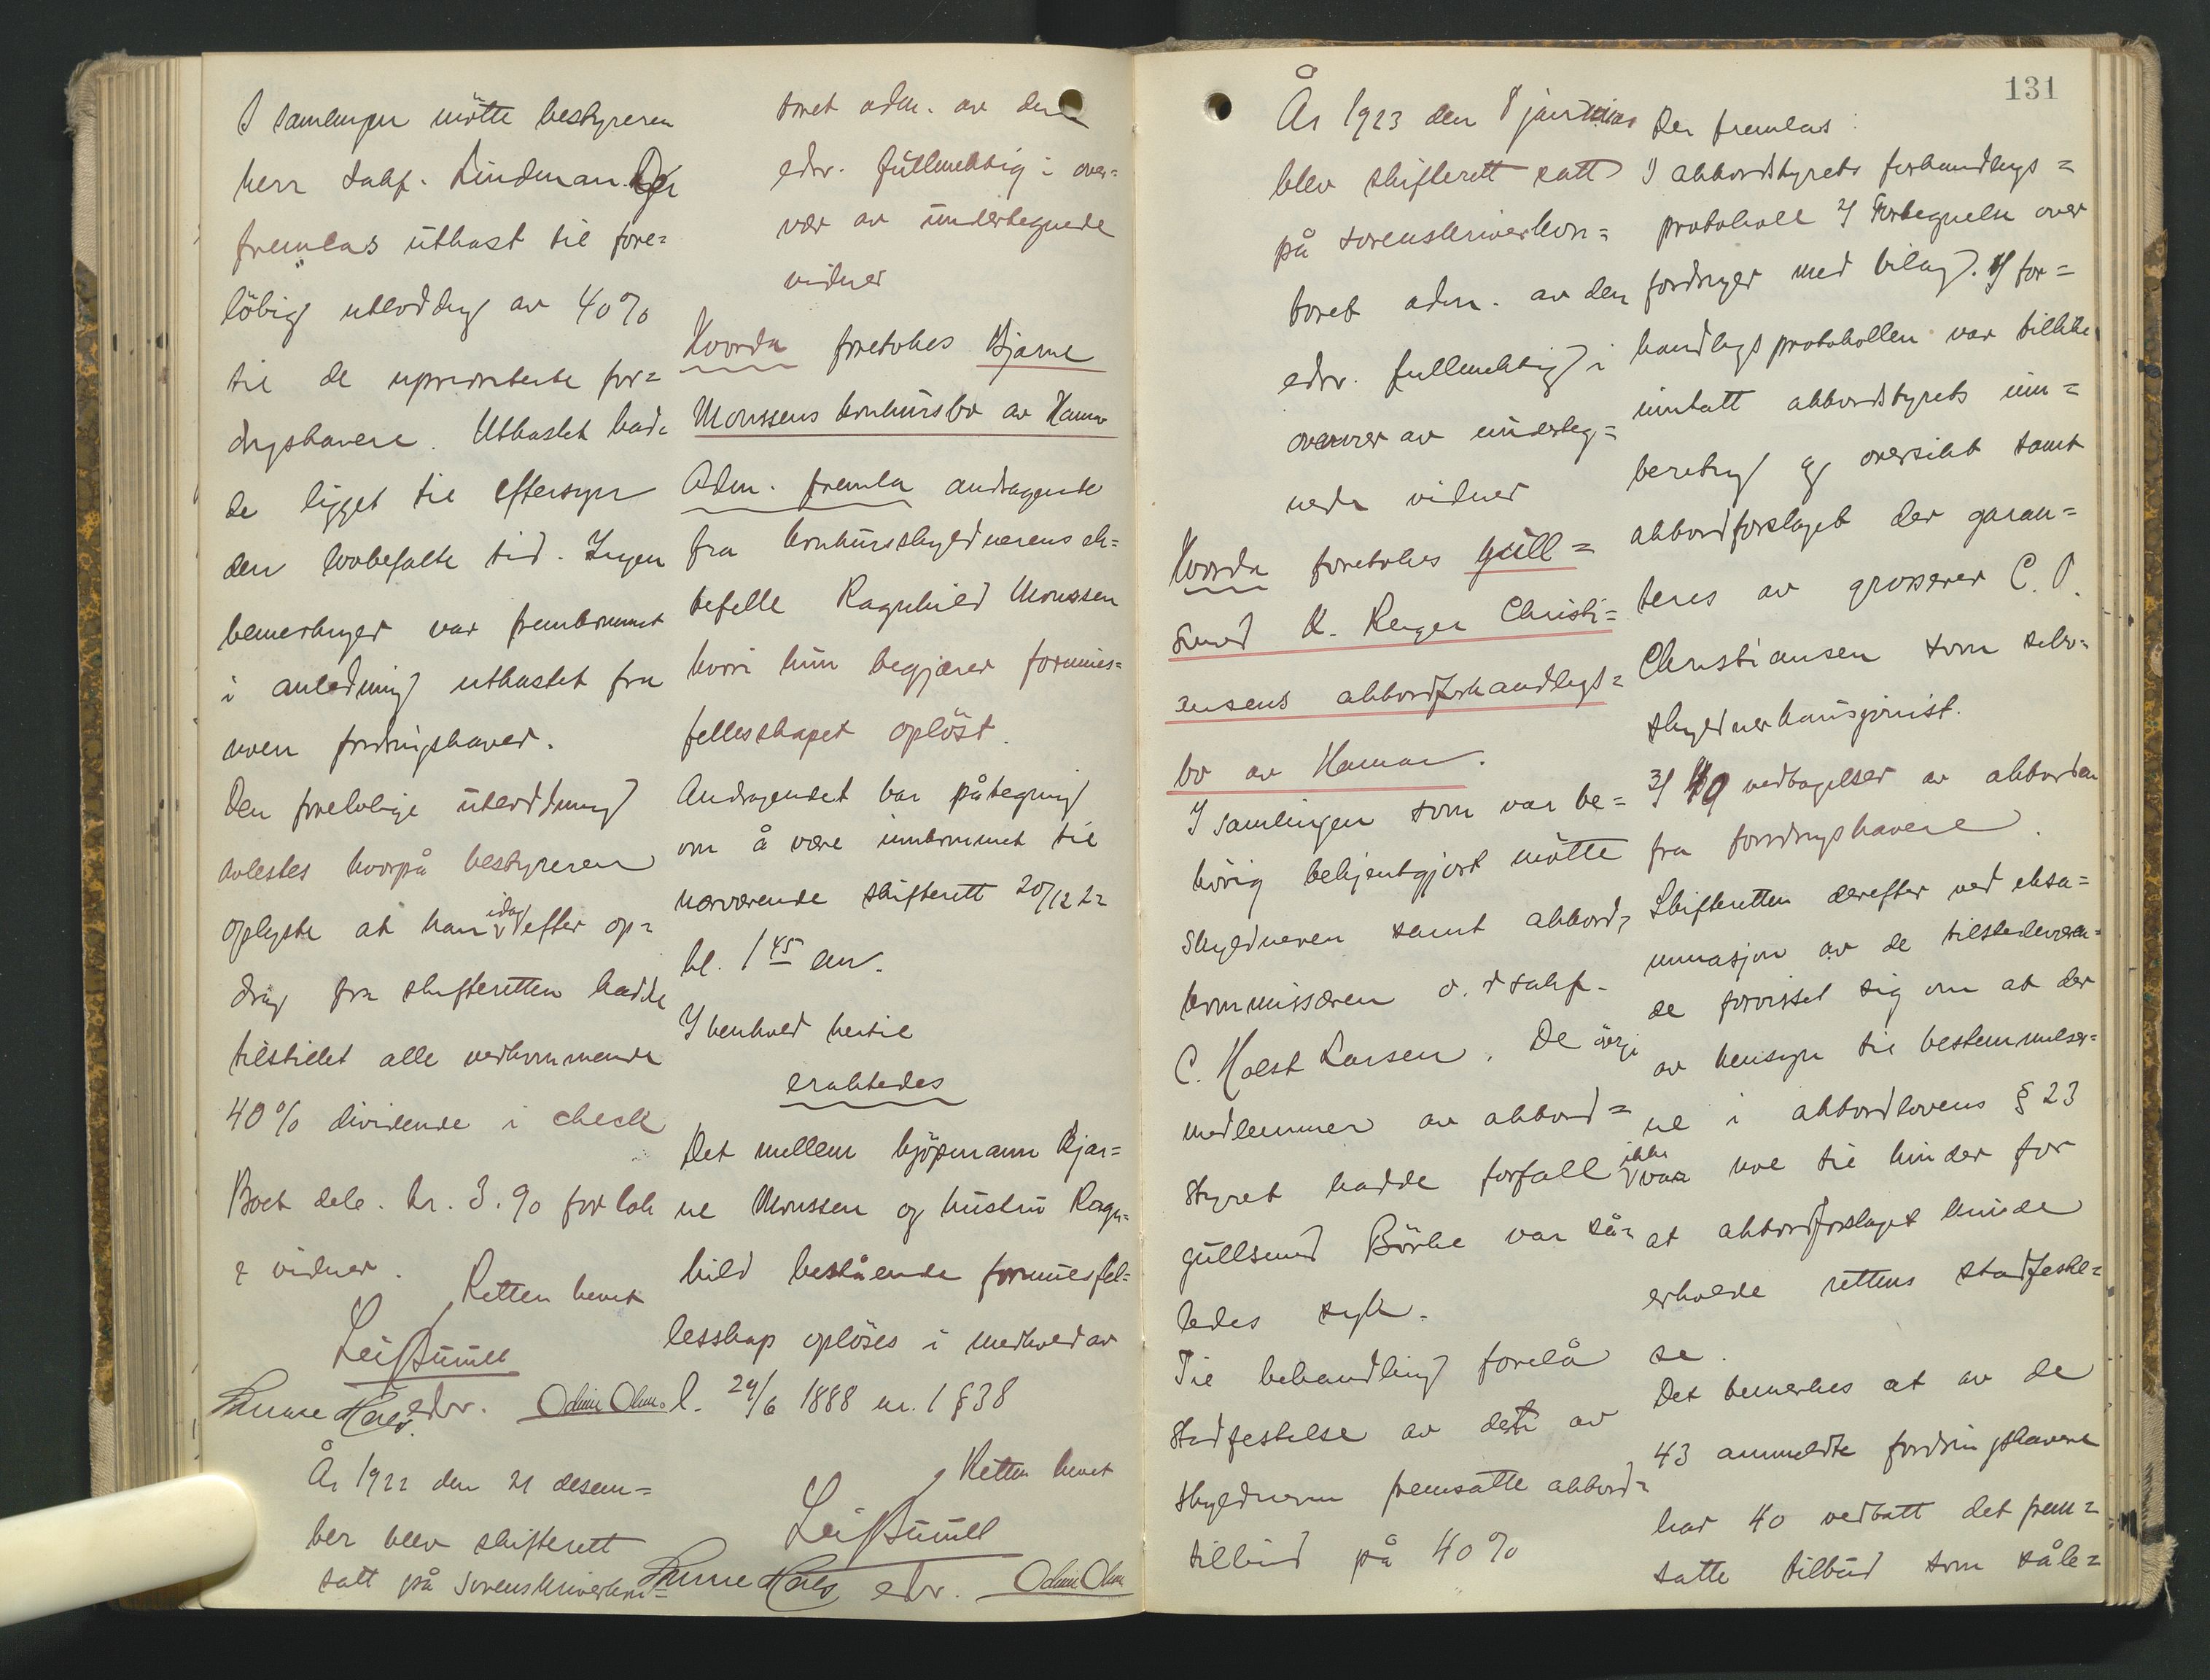 I samlingen mötte bestyreren
herr sakf. Lindman. Der
fremlas utkast til fore=
löbig utlodding av 40%
til de uprioriterte for=
dringshavere. Utkastet had=
de ligget til eftersyn
den lovbefalte tid. Ingen
bemerkninger var fremkommet
i anledning utkastet fra
noen fordringshaver.
Den foreløbige utlodding
avlestes hvorpå bestyreren
oplyste at han idag efter op=
drag fra skifteretten hadde
tilstillet alle vedkommende
40% dividende i check
Boet dele. kr. 3.90 for lok
& vidner.
Retten hevet
edsv.
År 1922 den 21 desem=
ber blev skifterett
satt på sorenskriverkon=
toret adm. av den
edsv. fullmektig i over=
vær av undertegnede
vidner
Hvorda foretokes Bjarne
Monssens konkursbo av Hamar
Adm. fremla andragende
fra konkursskyldnerens ek=
tefelle Ragnhild Monssen
hvori hun begjærer formues=
fellesskapet oplöst.
Andragendet bar påtegning
om å være innkommet til
nærværende skifterett 20/12 22
kl. 1 45 em.
I henhold hertil
eraktedes
Det mellem kjöpmann Bjar=
ne Monssen og hustru Ragn=
hild bestående formuesfel=
lesskap oplöses i medhold av
l. 29/6 1888 nr. 1 § 38
Retten hevet
edsv.
131
År 1923 den 8 januar
blev skifterett satt
på sorenskriverkon=
toret adm. av den
edsv. fullmektig i
overvær av underteg=
nede vidner
Hvorda foretokes gull=
smed K. Reger Christi=
ensens akkordforhandlings=
bo av Hamar.
I samlingen som var be=
hörig bekjentgjort mötte
skyldneren samt akkord=
kommissæren o.r.sakf.
C. Holst Larsen. De övrige
medlemmer av akkord=
styret hadde forfall
gullsmed Börke var så=
ledes syk.
Til behandling forelå
stadfestelse av dette av
skyldneren fremsatte akkord=
tilbud på 40%
Der fremlas:
1/ akkordstyrets forhandlings=
protokoll 2/ Fortegnelse over
fordringer med bilag. I for=
handlingsprotokollen var tillike
inntatt akkordstyrets inn=
beretning og oversikt samt
akkordforslaget der garan=
teres av grosserer C. P.
Christiansen som selv=
skyldnerkausjonist.
3/ 40 vedtagelser av akkorden
fra fordringshavere.
Skifteretten derefter ved eksa=
minasjon av de tilstedeværen=
de forvisset sig om at der
av hensyn til bestemmelser=
ne i akkordlovens § 23
ikke var noe til hinder for
at akkordforslaget kunde
erholde rettens stadfestel=
se.
Det bemerkes at av de
43 anmeldte fordringshavere
har 40 vedtatt det frem=
satte tilbud som såle=